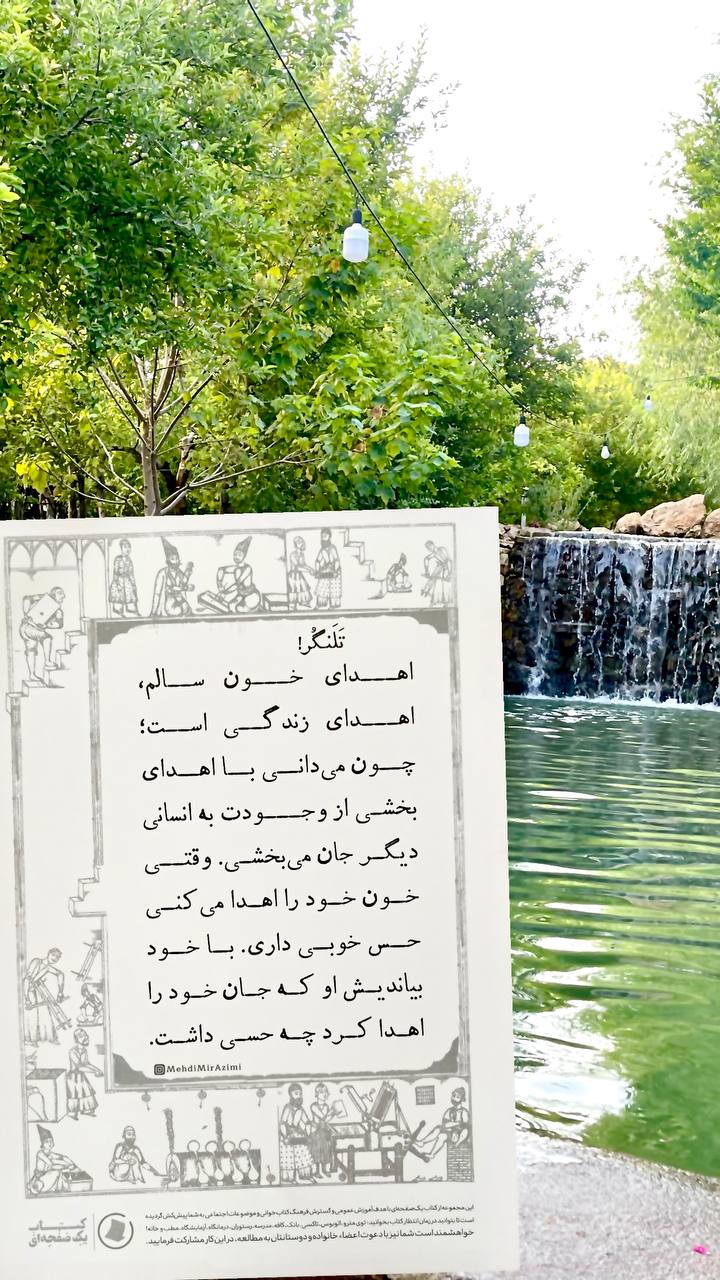 تَلَنگُر!
اهدای خون سالم،
اهدای زندگی است؛
چون می‌دانی با اهدای
بخشی از وجودت به انسانی
دیگر جان می‌بخشی. وقتی
خون خود را اهدا می کنی
حس خوبی داری. با خود
بیاندیش او که جان خود را
اهدا کرد چه حسی داشت.
MehdiMirAzimi
این مجموعه از کتاب یک صفحه‌ای با هدف آموزش عمومی و گسترش فرهنگ کتاب خوانی و موضوعات اجتماعی به شما پیش‌کش گردیده
است تا بتوانید در زمان انتظار کتاب بخوانید: توی مترو، اتوبوس، تاکسی، بانک، کافه، مدرسه، رستوران، درمانگاه، آزمایشگاه، مطب و خانه!
خواهشمند است شما نیز با دعوت اعضاء خانواده و دوستانتان به مطالعه، در این کار مشارکت فرمایید.
کتاب
یک صفحه‌ای